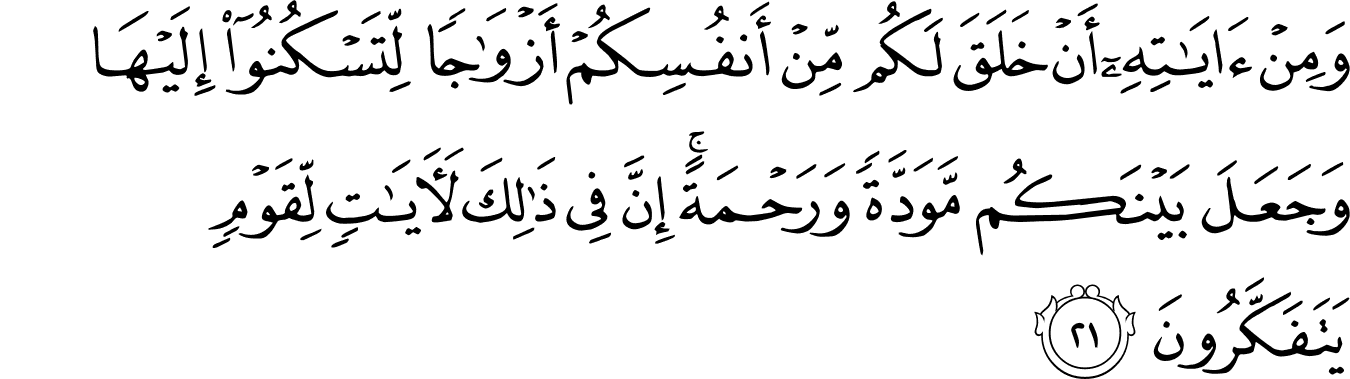 وَمِنْ ءَايَـٰتِهِۦٓ أَنْ خَلَقَ لَكُم مِّنْ أَنفُسِكُمْ أَزْوَٰجًا لِّتَسْكُنُوٓا۟ إِلَيْهَا
وَجَعَلَ بَيْنَكُم مَّوَدَّةً وَرَحْمَةً ۚ إِنَّ فِى ذَٰلِكَ لَـَٔايَـٰتٍ لِّقَوْمٍ
يَتَفَكَّرُونَ ٢١